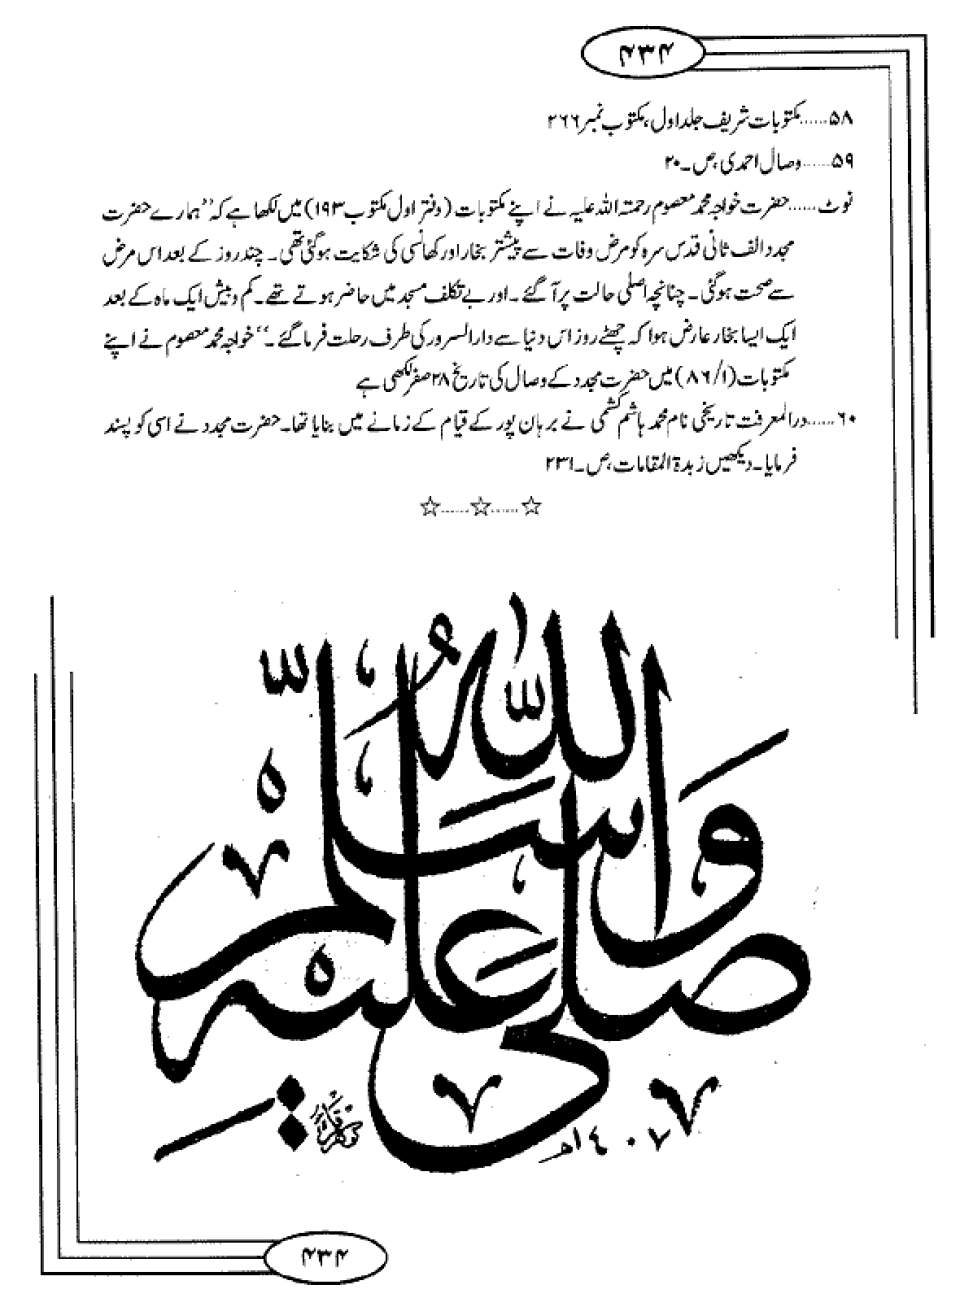 ۴۳۴
۵۸......مکتوبات شریف جلد اول، مکتوب نمبر ۲۶۶
۵۹......وصال احمدی ،ص۔۲۰
نوٹ......حضرت خواجہ محمد معصوم رحمتہ اللہ علیہ نے اپنے مکتوبات (دفتر اول مکتوب ۱۹۳) میں لکھا ہے کہ ’’ہمارے حضرت
مجدد الف ثانی قدس سرہ کو مرض وفات سے پیشتر بخار اور کھانسی کی شکایت ہوگئی تھی۔ چند روز کے بعد اس مرض
سے صحت ہوگئی۔ چنانچہ اصلی حالت پر آ گئے۔ اور بے تکلف مسجد میں حاضر ہوتے تھے۔ کم و بیش ایک ماہ کے بعد
ایک ایسا بخار عارض ہوا کہ چھٹے روز اس دنیا سے دارالسرور کی طرف رحلت فرما گئے۔‘‘ خواجہ محمد معصوم نے اپنے
مکتوبات (۸۶/۱) میں حضرت مجدد کے وصال کی تاریخ ۲۸ صفر لکھی ہے
۶۰......درالمعرفت تاریخی نام محمد ہاشم کشمی نے برہان پور کے قیام کے زمانے میں بنایا تھا۔ حضرت مجدد نے اسی کو پسند
فرمایا۔ دیکھیں زبدۃ المقامات ،ص۔۲۳۱
☆......☆......☆
صلى الله عليه واسلم
۴۳۴